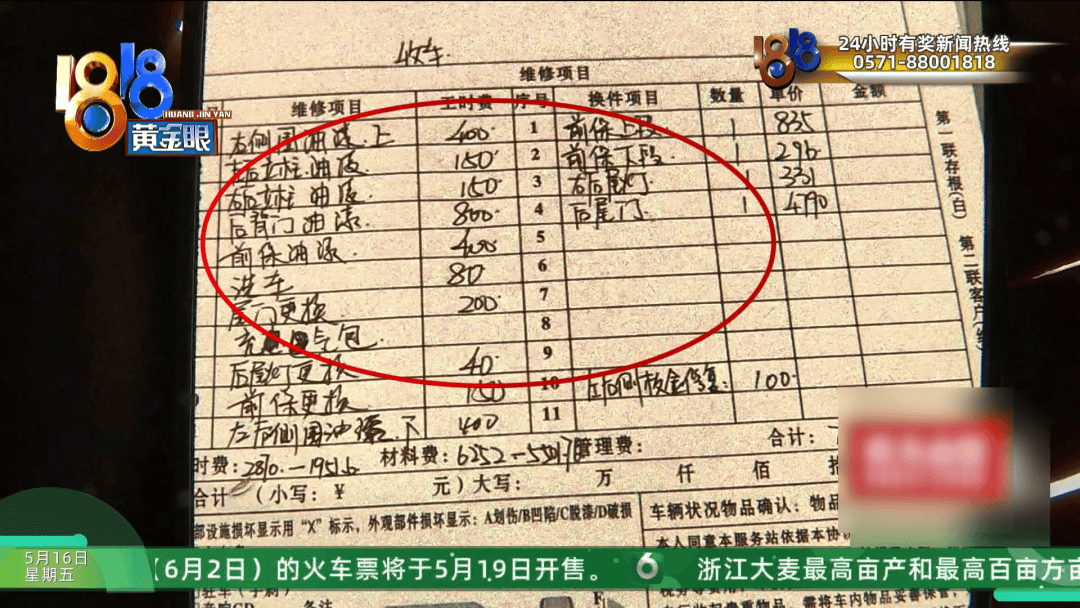 1818
HUANG JIN YAN
黄金眼
1818
24小时有奖新闻热线
0571-88001818
收车
维修项目
维修项目 工时费 序号 换件项目 数量 单价 金额
右侧围油漆上 400 1 前保上段 1 835
左后立柱油漆 150 2 前保下段 1 296
右后立柱油漆 150 3 右后尾灯 1 331
后背门油漆 800 4 后尾门 1 4790
前保油漆 400 5
洗车 80 6
尾门更换 200 7
气包 8
后尾灯更换 40 9
前保更换 10 左右侧钣金修复 100
左右侧围油漆下 400 11
第一联存根(白)
第二联客户
时费: 材料费:6252 管理费: 合计:
合计 (小写:¥ 元)大写: 万 仟 佰 拾
部设施损坏显示用“X”标示,外观部件损坏显示:A划伤/B凹陷/C脱漆/D破损
车辆状况物品确认:物品
本人同意本服务站依据本协
备注
需将车内物品妥善保管,
5月16日
星期五
(6月2日)的火车票将于5月19日开售。 浙江大麦最高亩产和最高百亩方亩